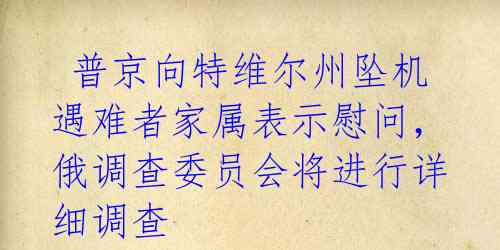 普京向特维尔州坠机
遇难者家属表示慰问，
俄调查委员会将进行详
细调查